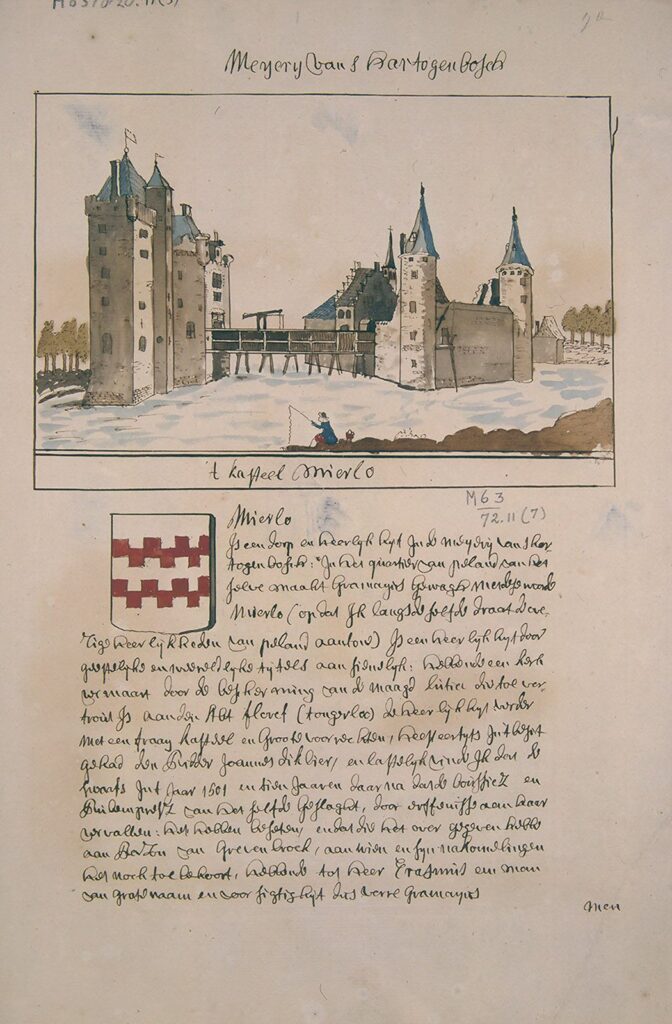 M 63/72.11(5)
Meyery van s Hartogenbosch
't kasteel Mierlo
M 63
72.11 (7)
Mierlo
Is een dorp en heerlykhyt In de meydry van s har
togenbosch: In het quartier van peland van het
selve maakt Gramayus gewagh met dese woorde
Mierlo (op dat Ik langs de selfde draat de ove-
rige heerlijkheden van peland aantoon) Is een heerlijkhyt door
geestelijke en wereldlijke tijtels aansienelijk: hebbende een kerk
vermaart door de bescherming van de maagd Lucien die toe ver
trout Is aan den Abt (tongerloo) de heerlijkhyt verder
Met een fraay kasteel en Groote voorrechten, heeft eertyts In't beset
gehad den Ridder Joannes dikbier, en lastelyk vinde Ik dat de
Int Jaar 1501 en tien Jaaren daar na dat de en
van het selfde geslaght, door erffenisse aen haar
vervallen: het hebben beseten, en dat die het over gegeven hebbe
aan van Grevenbroek, aan wien en syn nakomelingen
het noch toe behoort, hebbende tot heer Erasmus een man
van Grote naam en voorsigtighyt dus verre Gramayus
men